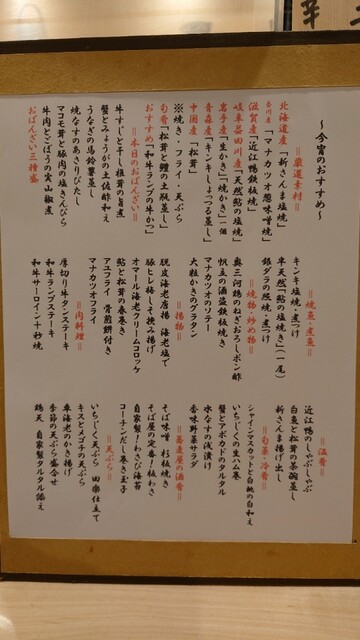 ~今宵のおすすめ~
=厳選素材=
北海道産「新さんま塩焼」
香川産「マナカツオ葱味噌焼」
滋賀産「近江鴨鉄板焼」
岐阜益田川産「天然鮎の塩焼」
岩手産「生かき」「焼かき」一個
青森産「キンキしょつつる蒸し」
中国産「松茸」
※焼き・フライ・天ぷら
旬肴「松茸と鱧の土瓶蒸し」
おすすめ「和牛ランプの牛かつ」
=本日のおばんざい=
牛すじと干し椎茸の旨煮
蟹とみょうがの土佐酢和え
うなぎの馬鈴薯蒸し
焼なすのあさりびたし
マコモ茸と豚肉の塩きんぴら
牛肉とごぼうの実山椒煮
おばんざい三種盛
=焼魚・煮魚=
キンキ塩焼・煮つけ
半天然「鮎の塩焼き」(一尾)
銀ダラの照焼・煮つけ
=焼物・炒め物=
奥三河鶏のねぎおろしポン酢
帆立の酒盗鉄板焼き
マナカツオのソテー
大粒かきのグラタン
=揚物=
脱皮海老唐揚 海老塩で
豚ヒレ梅しそ挟み揚げ
オマール海老クリームコロッケ
鮎と松茸の春巻き
アユフライ 骨煎餅付き
マナカツオフライ
=肉料理=
厚切り牛タンステーキ
和牛ランプステーキ
和牛サーロイン十秒焼
=温肴=
近江鴨のしゃぶしゃぶ
白魚と松茸の茶碗蒸し
新さんま揚げ出し
=旬菜・冷肴=
シャインマスカットと白桃の白和え
いちじくの生ハム巻
蟹とアボカドのタルタル
水なすの浅漬け
香味野菜サラダ
=蕎麦屋の酒肴=
そば味噌 杉板焼き
そば屋の定番!板わさ
自家製!わさび海苔
コーチンだし巻き玉子
=天ぷら=
いちじく天ぷら 田楽仕立て
キスとメゴチの天ぷら
車海老のかき揚げ
季節の天ぷら盛合せ
鶏天 自家製タルタル添え